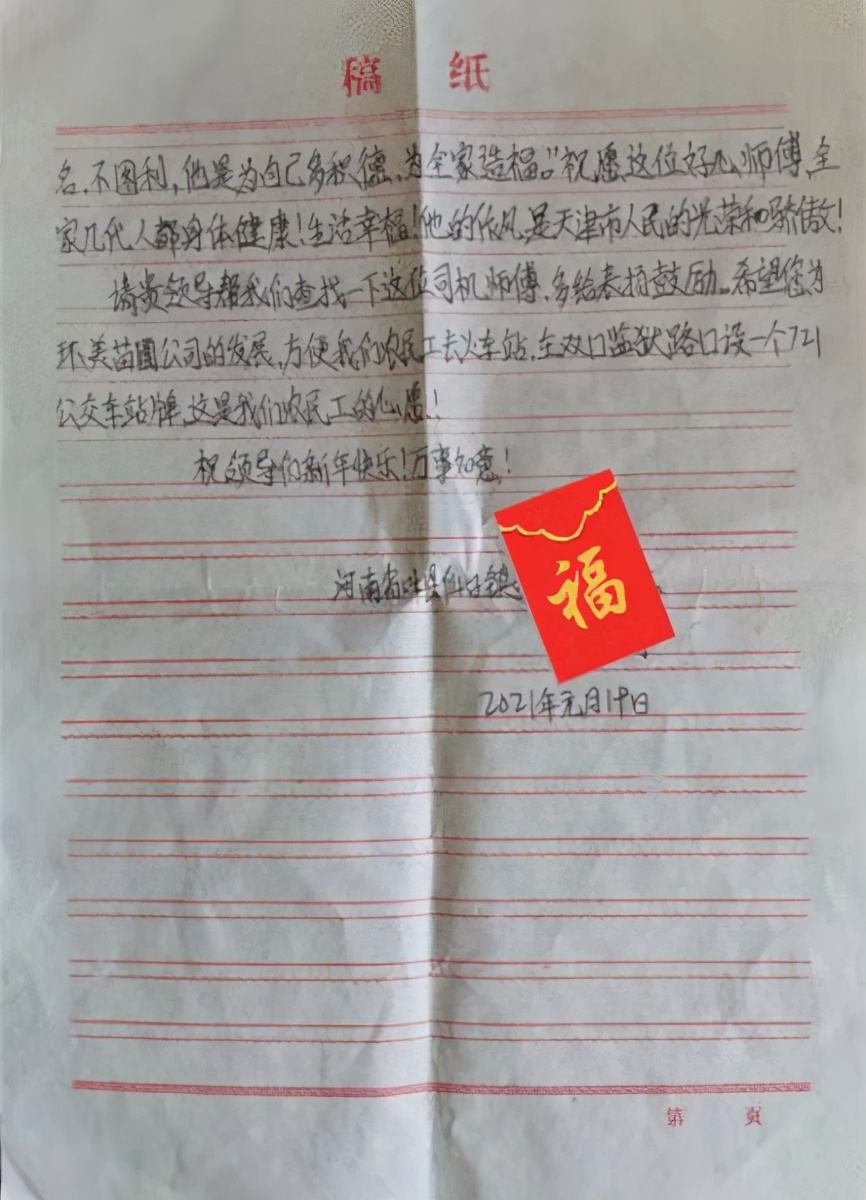 稿 纸
名，不图利，他是为自己多积德，为全家造福。”祝愿这位好心师傅，全
家几代人都身体健康！生活幸福！他的作风是天津市人民的光荣和骄傲！
请贵领导帮我们查找一下这位司机师傅，多给表扬鼓励。希望您为
环美苗圃公司的发展，方便我们农民工去火车站，在双口监狱路口设一个721
公交车站牌，这是我们农民工的心愿！
祝领导们新年快乐！万事如意！
河南省 县
福
2021年元月19日
第 页